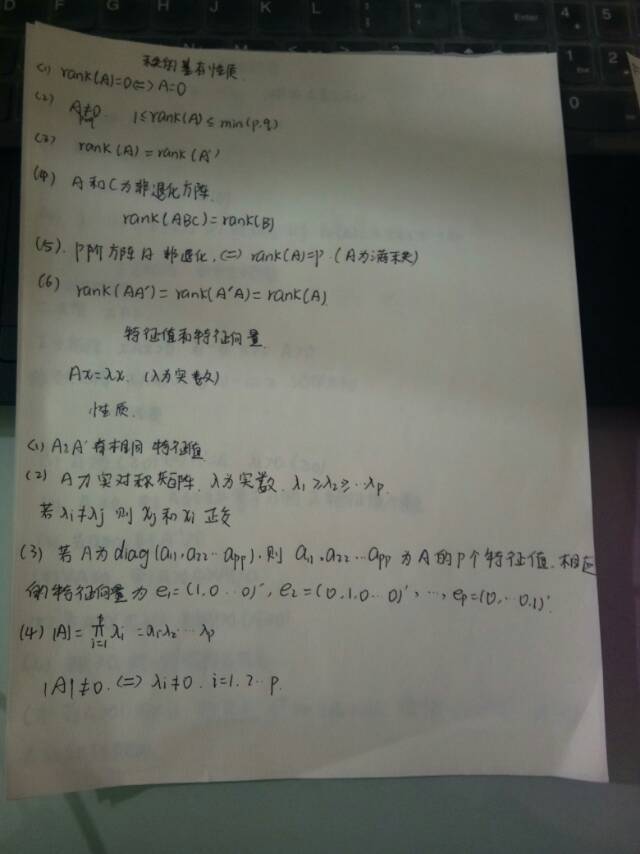 秩的基本性质
(1) rank(A)=0 <=> A=0
(2) A≠0. 1≤rank(A)≤min(p.q)
(3) rank(A)=rank(A')
(4) A和C为非退化方阵.
rank(ABC)=rank(B)
(5). P阶方阵A非退化. <=> rank(A)=p. (A为满秩)
(6) rank(AA')=rank(A'A)=rank(A)
特征值和特征向量
Ax=λx. (λ为实数)
性质.
(1) A与A'有相同特征值
(2) A为实对称矩阵. λ为实数. λ₁≥λ₂≥..λp.
若λi≠λj 则xj和xi正交
(3) 若A为diag(a₁₁.a₂₂..app).则a₁₁.a₂₂...app为A的P个特征值.相应
的特征向量为e₁=(1,0..0)', e₂=(0.1,0...0)', ..., ep=(0,...0.1)'.
(4) |A|=∏λi=λ₁λ₂...λp
|A|≠0. <=> λi≠0. i=1.2..p.